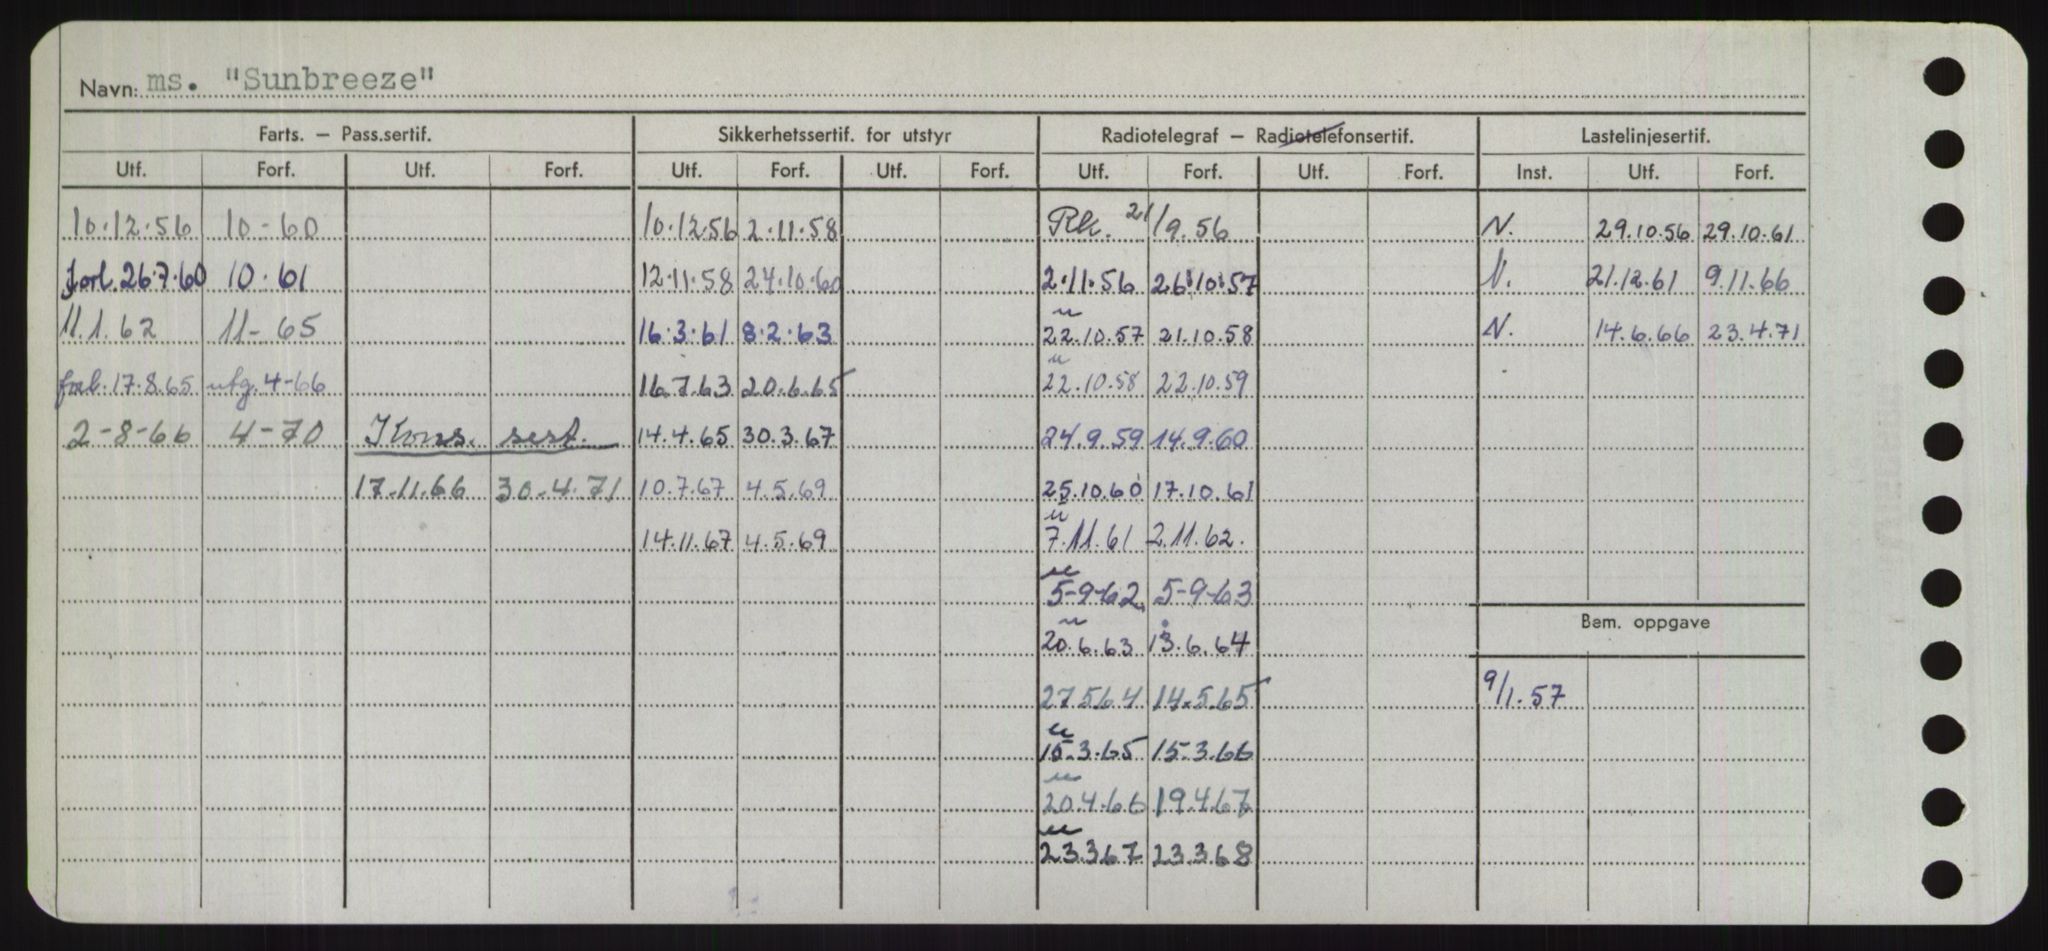 Navn: ms. "Sunbreeze"
Farts. – Pass.sertif. Sikkerhetssertif. for utstyr Radiotelegraf – Radiotelefonsertif. Lastelinjesertif.
Utf. Forf. Utf. Forf. Utf. Forf. Utf. Forf. Utf. Forf. Utf. Forf. Inst. Utf. Forf.
10.12.56 10-60 10.12.56 2.11.58 Rk. 21/9.56 N. 29.10.56 29.10.61
forl. 26.7.60 10.61 12.11.58 24.10.60 2.11.56 26.10.57 N. 21.12.61 9.11.66
11.1.62 11-65 16.3.61 8.2.63 22.10.57 21.10.58 N. 14.6.66 23.4.71
forl. 17.8.65 utg. 4-66 16.7.63 20.6.65 22.10.58 22.10.59
2-8-66 4-70 Kons. sert. 14.4.65 30.3.67 24.9.59 14.9.60
17.11.66 30.4.71 10.7.67 4.5.69 25.10.60 17.10.61
14.11.67 4.5.69 7.11.61 2.11.62.
5-9-62 5-9-63
Bem. oppgave
20.6.63 13.6.64
27.5.64 14.5.65 9/1.57
15.3.65 15.3.66
20.4.66 19.4.67
23.3.67 23.3.68